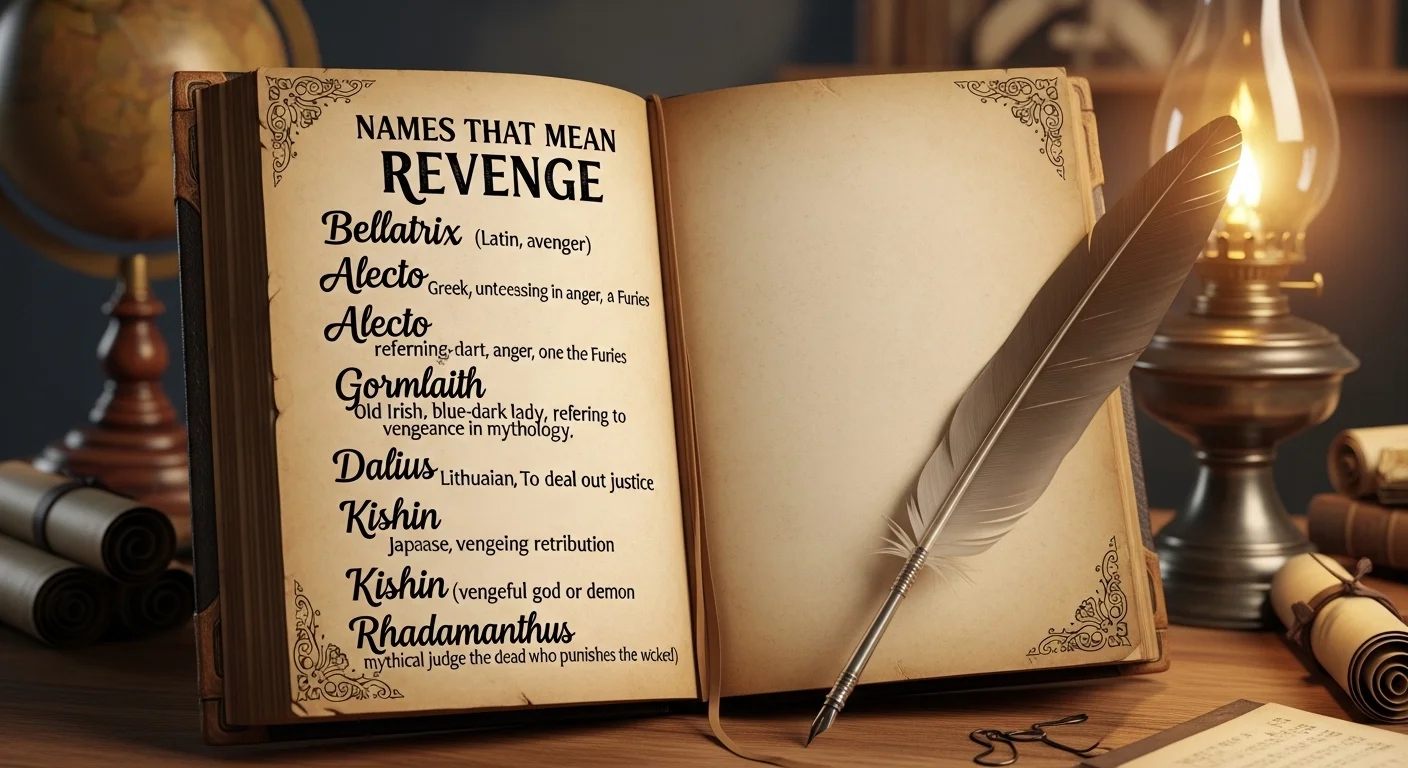 NAMES THAT MEAN
REVENGE
Bellatrix (Latin, avenger)
Alecto Greek, unteessing in anger, a Furies
Alecto
referring-dart, anger, one the Furies
Gormlaith
Old Irish, blue-dark lady, refering to
vengeance in mythology.
Dalius Lithuaian, To deal out justice
Kishin
Japaase, vengeing retribution
Kishin (vengeful god or demon
Rhadamanthus
mythical judge the dead who punishes the wicked)